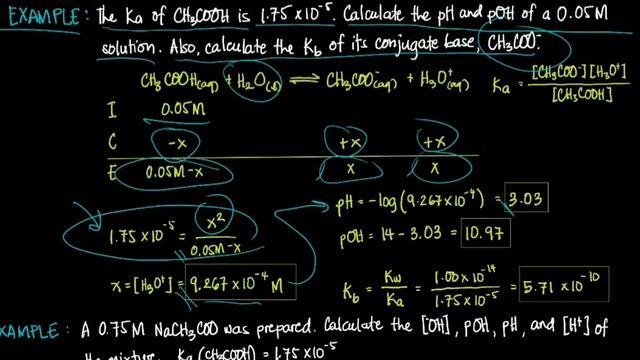 EXAMPLE: The Ka of CH₃COOH is 1.75×10⁻⁵. Calculate the pH and pOH of a 0.05M
solution. Also, calculate the Kb of its conjugate base, CH₃COO⁻.
CH₃COOH(aq) + H₂O(l) ⇌ CH₃COO⁻(aq) + H₃O⁺(aq) Ka = [CH₃COO⁻][H₃O⁺] / [CH₃COOH]
I 0.05M
C -x +x +x
E 0.05M-x x x
1.75×10⁻⁵ = x² / 0.05M-x
pH = -log(9.267×10⁻⁴) = 3.03
pOH = 14 - 3.03 = 10.97
x = [H₃O⁺] = 9.267×10⁻⁴ M
Kb = Kw / Ka = 1.00×10⁻¹⁴ / 1.75×10⁻⁵ = 5.71×10⁻¹⁰
EXAMPLE: A 0.75M NaCH₃COO was prepared. Calculate the [OH], pOH, pH, and [H⁺] of
the mixture. Ka (CH₃COOH) = 1.75×10⁻⁵